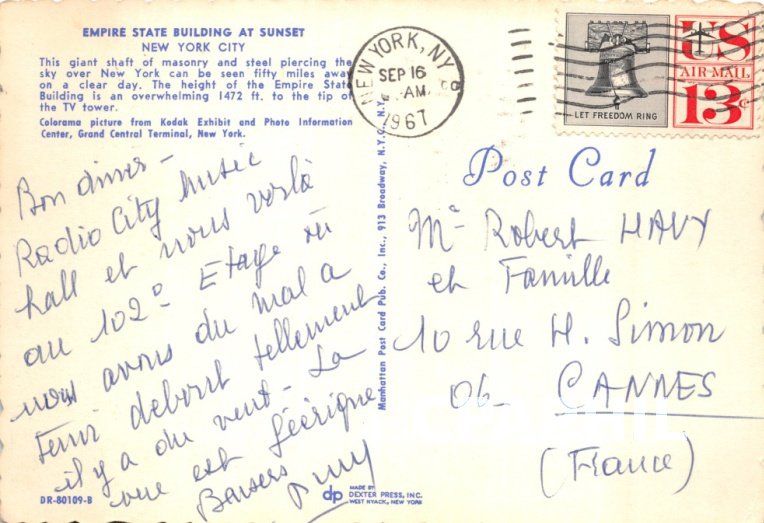 EMPIRE STATE BUILDING AT SUNSET
NEW YORK CITY
This giant shaft of masonry and steel piercing the
sky over New York can be seen fifty miles away
on a clear day. The height of the Empire State
Building is an overwhelming 1472 ft. to the tip of
the TV tower.
Colorama picture from Kodak Exhibit and Photo Information
Center, Grand Central Terminal, New York.
NEW YORK, N.Y.
SEP 16
AM
1967
LET FREEDOM RING
US
AIR MAIL
13c
Post Card
Bon diner -
Radio City Music
hall et nous voilà
au 102° Etage où
nous avons du mal a
tenir debout tellement
il y a du vent - La
vue est féérique
Baisers
Manhattan Post Card Pub. Co., Inc., 913 Broadway, N.Y.C. N.Y.
Mr Robert HAVY
et Famille
10 rue H. Simon
06- CANNES
(France)
DR-80109-B
dp
MADE BY
DEXTER PRESS, INC.
WEST NYACK, NEW YORK